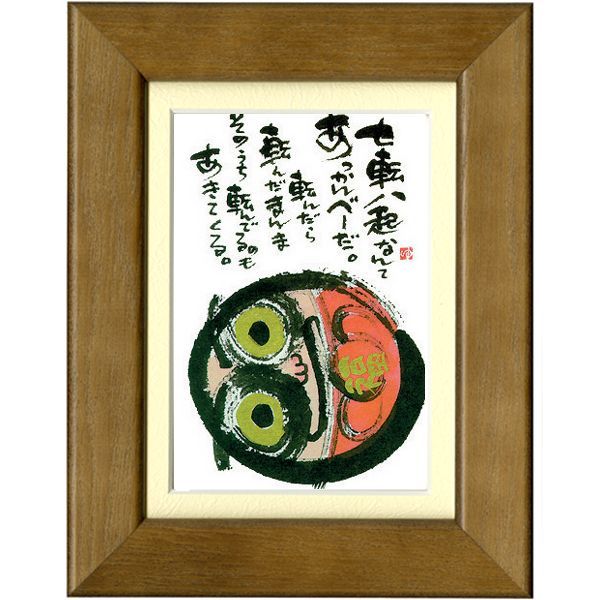 七転八起なんて
あっかんべーだ。
転んだら
転んだまんま
そのうち転んでるのも
あきてくる。